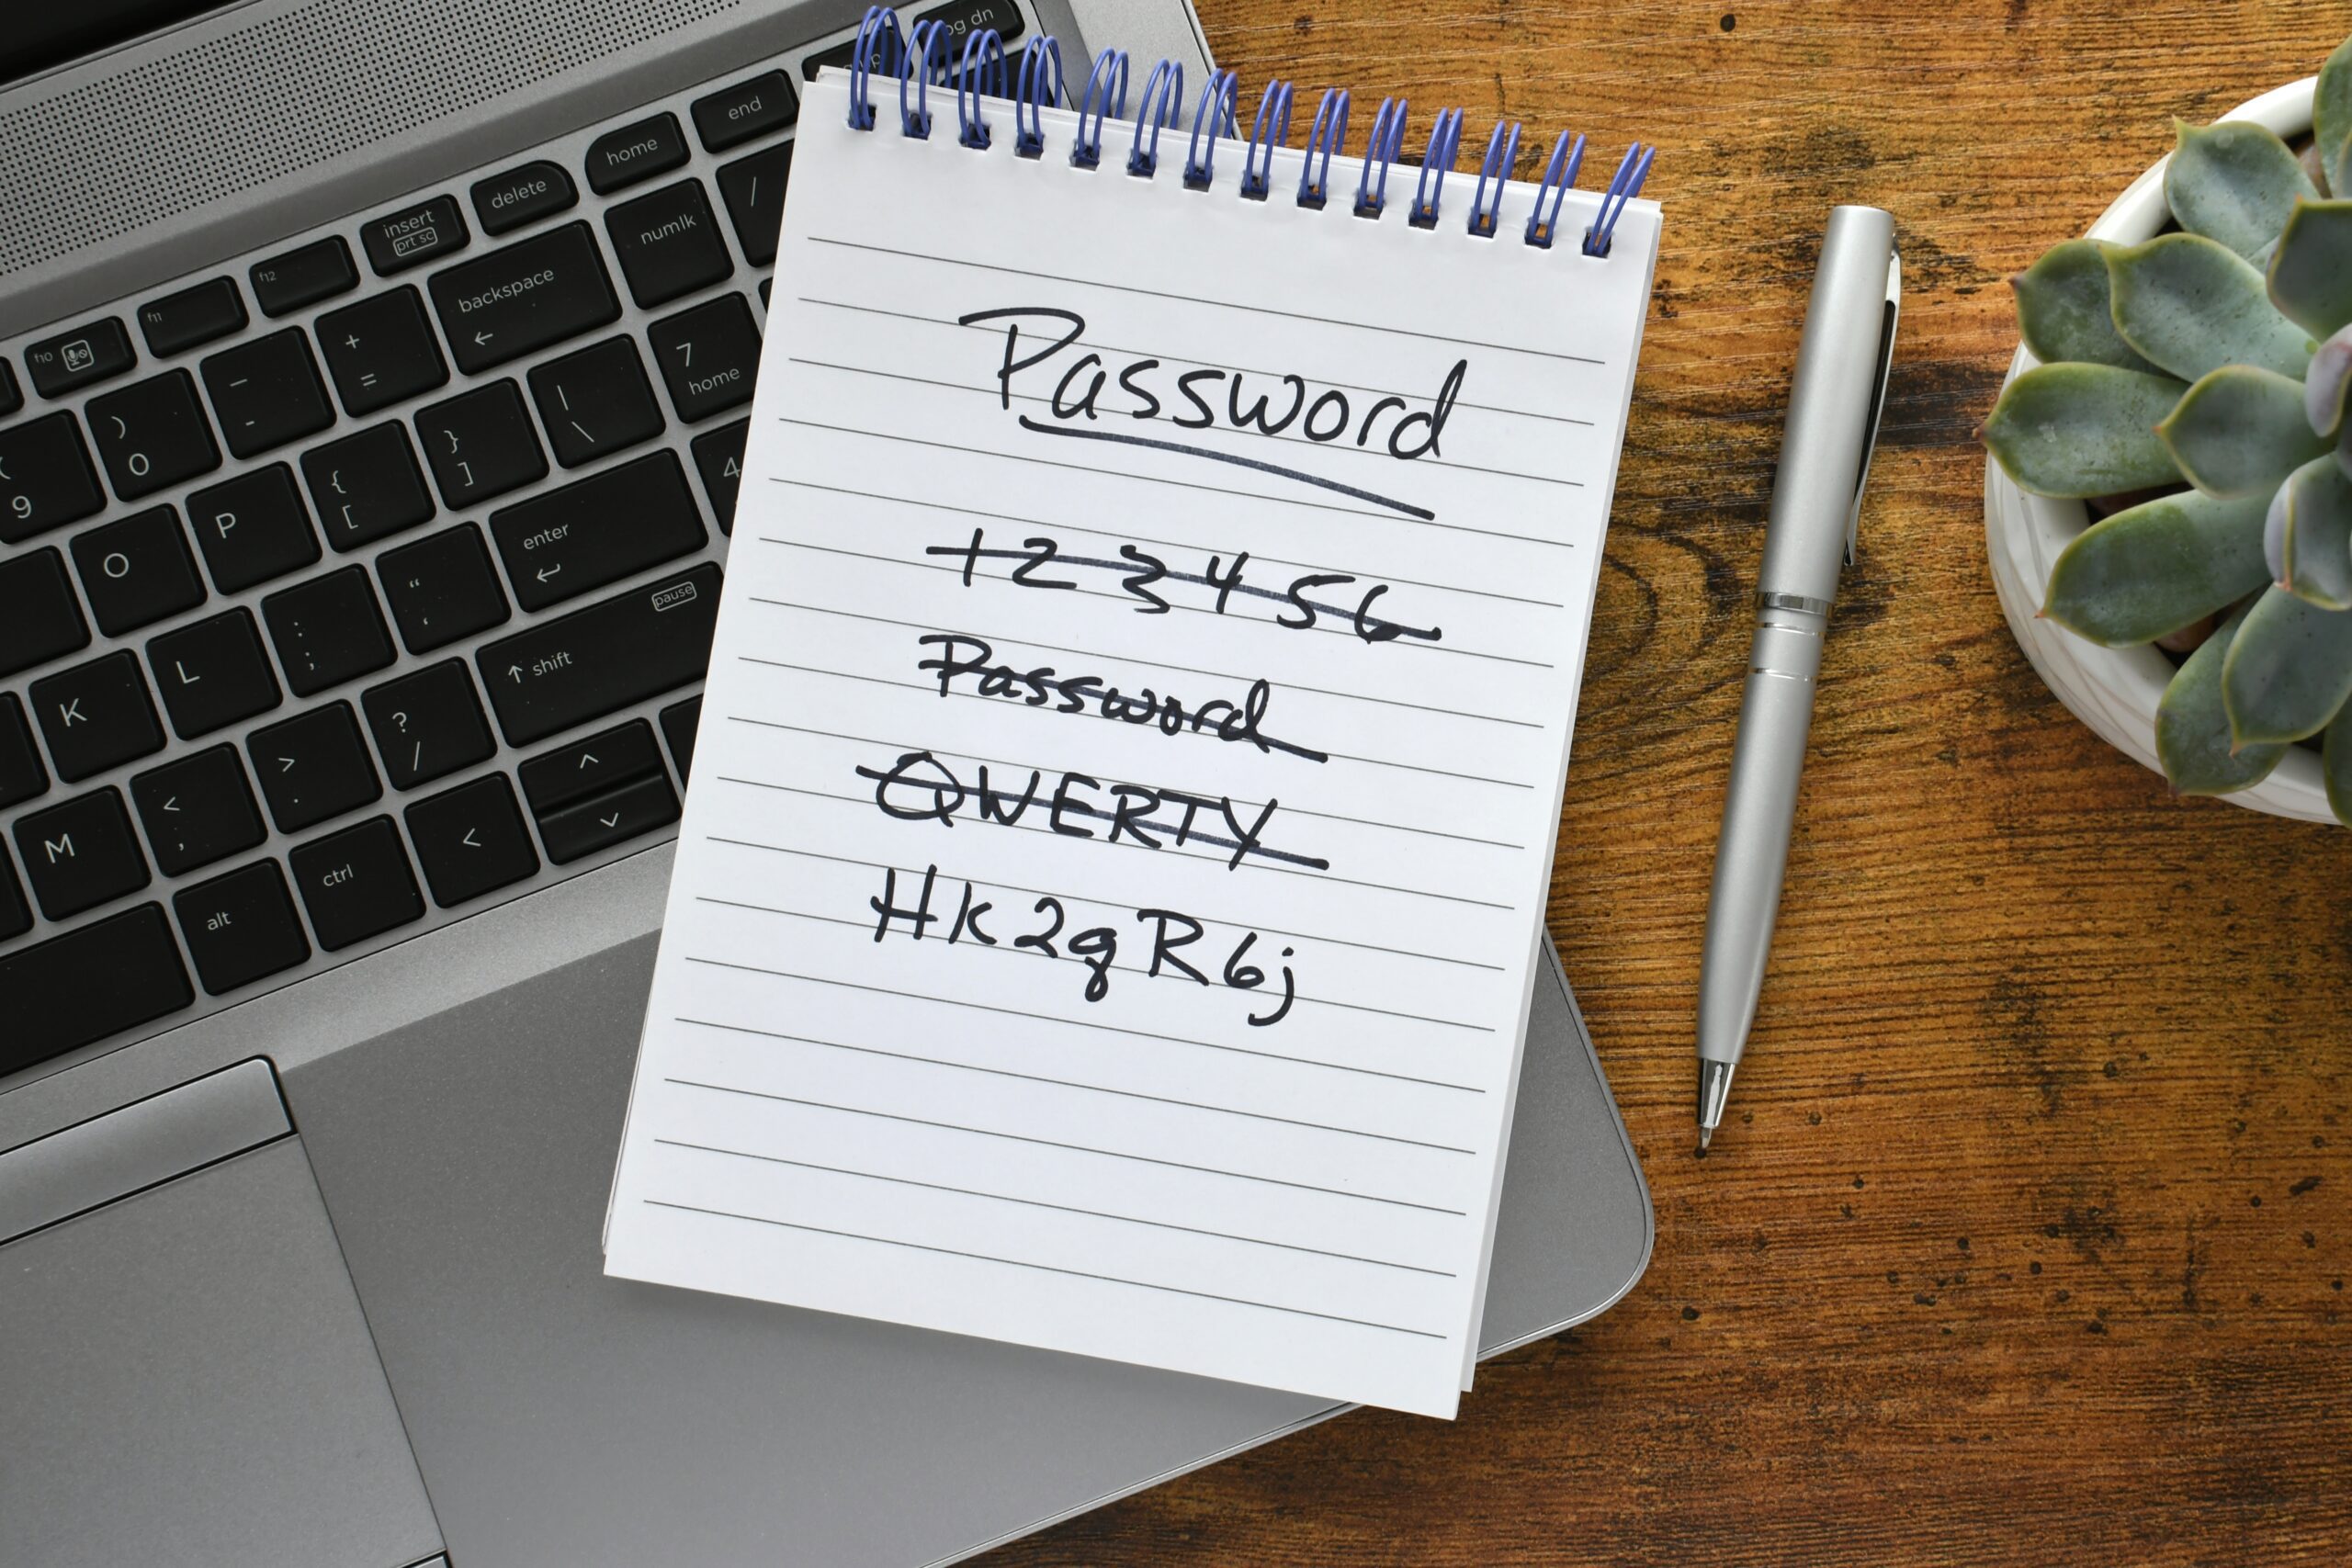 Password
123456
Password
QWERTY
Hk2gR6j
pg dn
end
home
delete
insert
prt sc
f12
f11
f10
numlk
/
backspace
←
+
=
—
-
)
0
(
9
7
home
|
\
}
]
{
[
P
O
4
enter
↵
"
'
:
;
L
K
pause
↑ shift
?
/
>
.
<
,
M
alt
ctrl
<
^
v